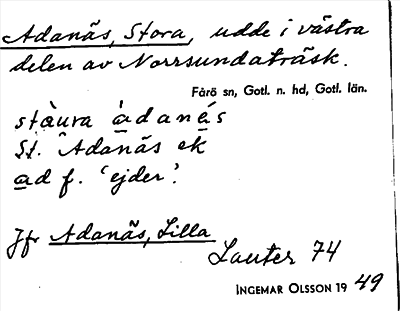 Adanäs, Stora, udde i västra
delen av Norrsundaträsk.
Fårö sn, Gotl. n. hd, Gotl. län.
stàura àdanás
St. Adanäs ek
ad f. 'ejder'.
Jfr Adanäs, Lilla
Lauter 74
INGEMAR OLSSON 19 49